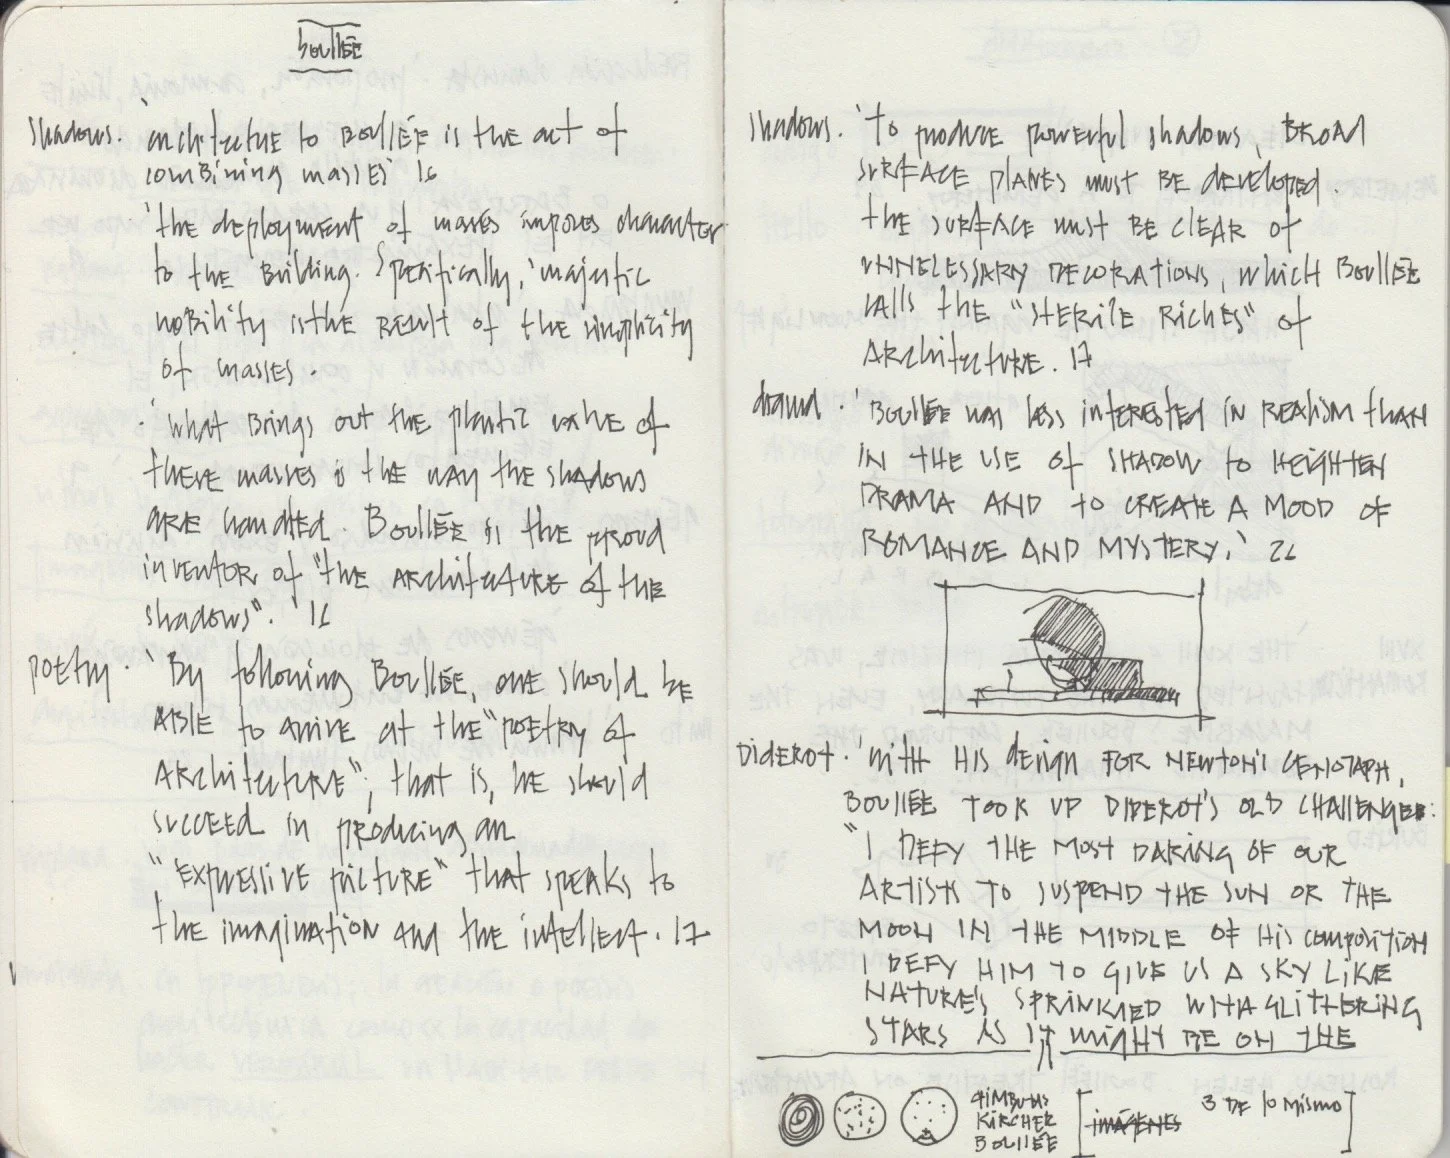 boullēe
shadows. 'architectue to BoullēE is the act of
combining masses' 16
'the deployment of masses imposes character
to the building. Specifically, 'majestic
nobility is the result of the simplicity
of masses.
. 'what brings out the plastic value of
these masses is the way the shadows
are handled. Boullēe is the proud
inventor of "the architecture of the
shadows".' 16
poetry. 'By following Boullēe, one should be
able to arrive at the "poetry of
architecture"; that is, he should
succeed in producing an
"expressive picture" that speaks to
the imagination and the intellect. 17
shadows. 'to produce powerful shadows, broad
surface planes must be developed.
the surface must be clear of
unnecessary decorations, which Boullēe
calls the "sterile riches" of
architecture. 17
drama. 'Boullēe was less interested in realism than
in the use of shadow to heighten
drama and to create a mood of
romance and mystery.' 26
Diderot. 'with his design for Newton's cenotaph,
Boullēe took up Diderot's old challenge:
"I defy the most daring of our
artists to suspend the sun or the
moon in the middle of his composition
I defy him to give us a sky like
nature's sprinkled with glithering
stars as it might be on the
Gimbutas
Kircher
Boullēe
[imágenes 3 de lo mismo]